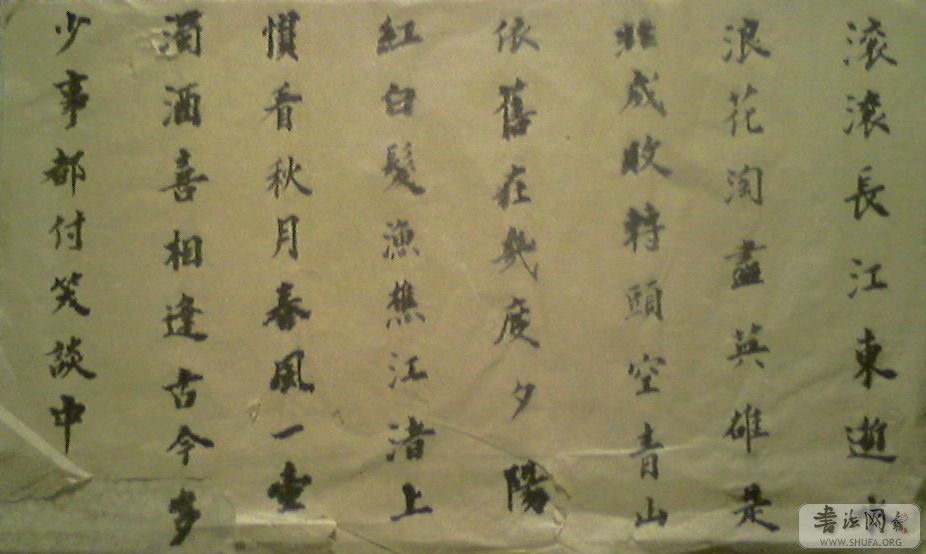 滚滚長江東逝
浪花淘盡英雄是
非成敗轉頭空青山
依舊在幾度夕陽
紅白髮漁樵江渚上
慣看秋月春風一壺
濁酒喜相逢古今多
少事都付笑談中
書法网
WWW.SHUFA.ORG